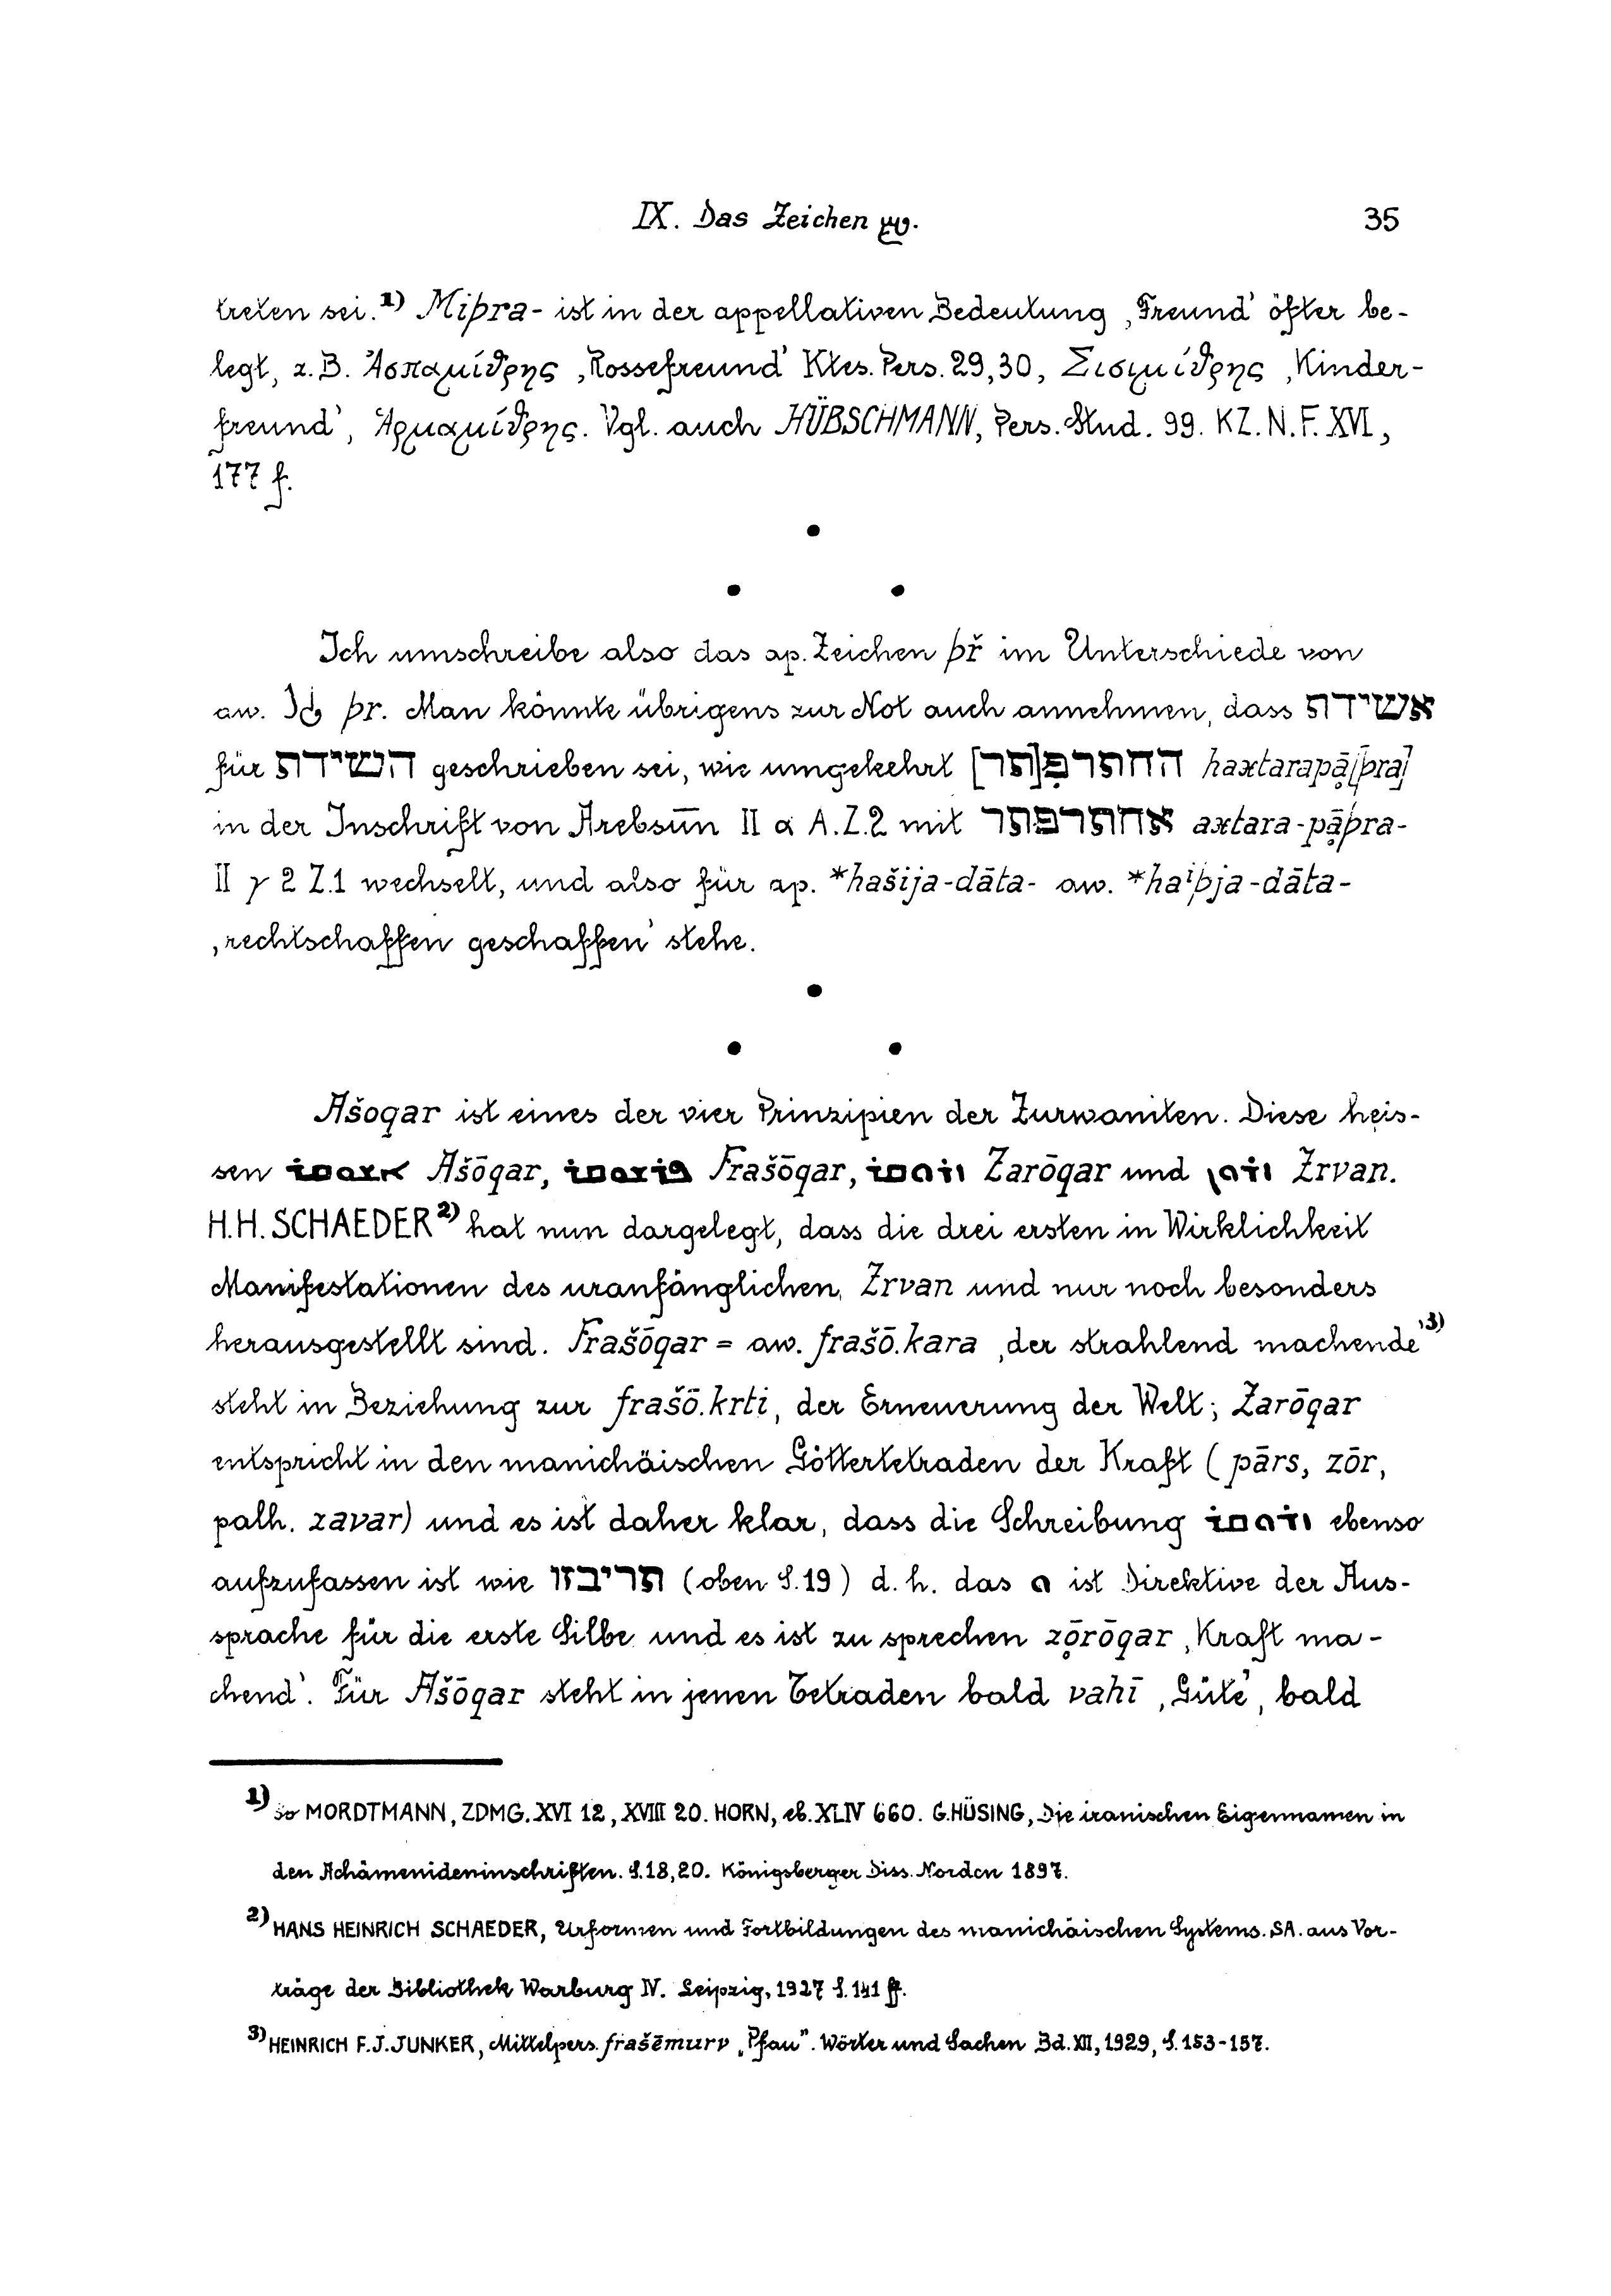 IX. Das Zeichen
35
treten sei.¹⁾ Miþra- ist in der appellativen Bedeutung ‚Freund‘ öfter be-
legt, z.B. Ἀσπαμίθρης ‚Rossefreund‘ Ktes. Pers. 29,30, Σισιμίθρης ‚Kinder-
freund‘, Ἁρμαμίθρης. Vgl. auch HÜBSCHMANN, Pers. Stud. 99. KZ. N.F. XVI,
177 f.
Ich umschreibe also das ap. Zeichen þř im Unterschiede von
aw. þr. Man könnte übrigens zur Not auch annehmen, dass אשידת
für השידת geschrieben sei, wie umgekehrt החתרפ[תר] haxtarapā[þra]
in der Inschrift von Arebsūn II α A.Z.2 mit אחתרפתר axtara-pāþra-
II γ 2 Z.1 wechselt, und also für ap. *hašija-dāta- aw. *haⁱþja-dāta-
‚rechtschaffen geschaffen‘ stehe.
Ašoqar ist eines der vier Prinzipien der Zurwaniten. Diese heis-
sen ܐܫܘܩܪ Ašōqar, ܦܪܫܘܩܪ Frašōqar, ܙܪܘܩܪ Zarōqar und ܙܪܘܢ Zrvan.
H.H. SCHAEDER²⁾ hat nun dargelegt, dass die drei ersten in Wirklichkeit
Manifestationen des uranfänglichen Zrvan und nur noch besonders
herausgestellt sind. Frašōqar = aw. frašō.kara ‚der strahlend machende‘³⁾
steht in Beziehung zur frašō.krti, der Erneuerung der Welt; Zarōqar
entspricht in den manichäischen Göttertetraden der Kraft (pārs, zōr,
palh. zavar) und es ist daher klar, dass die Schreibung ܙܪܘܩܪ ebenso
aufzufassen ist wie תריבזו (oben S.19) d.h. das ܘ ist Direktive der Aus-
sprache für die erste Silbe und es ist zu sprechen zọ̄rōqar ‚Kraft ma-
chend‘. Für Ašōqar steht in jenen Tetraden bald vahī ‚Güte‘, bald
¹⁾ so MORDTMANN, ZDMG. XVI 12, XVIII 20. HORN, eb. XLIV 660. G.HÜSING, Die iranischen Eigennamen in
den Achämenideninschriften. S.18,20. Königsberger Diss. Norden 1897.
²⁾ HANS HEINRICH SCHAEDER, Urformen und Fortbildungen des manichäischen Systems. SA. aus Vor-
träge der Bibliothek Warburg IV. Leipzig, 1927 S. 141 ff.
³⁾ HEINRICH F.J. JUNKER, Mittelpers. frašēmurv „Pfau”. Wörter und Sachen Bd. XII, 1929, S. 153-157.